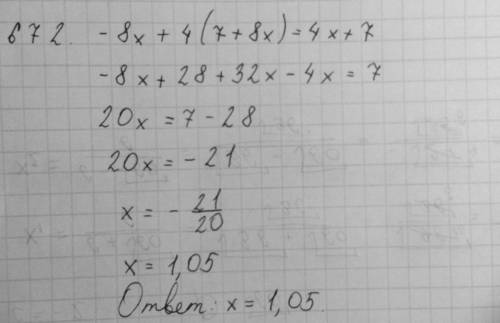 672. -8x + 4(7+8x)=4x+7
-8x+28+32x-4x=7
20x=7-28
20x=-21
x=-21/20
x=1,05
Ответ: x=1,05.